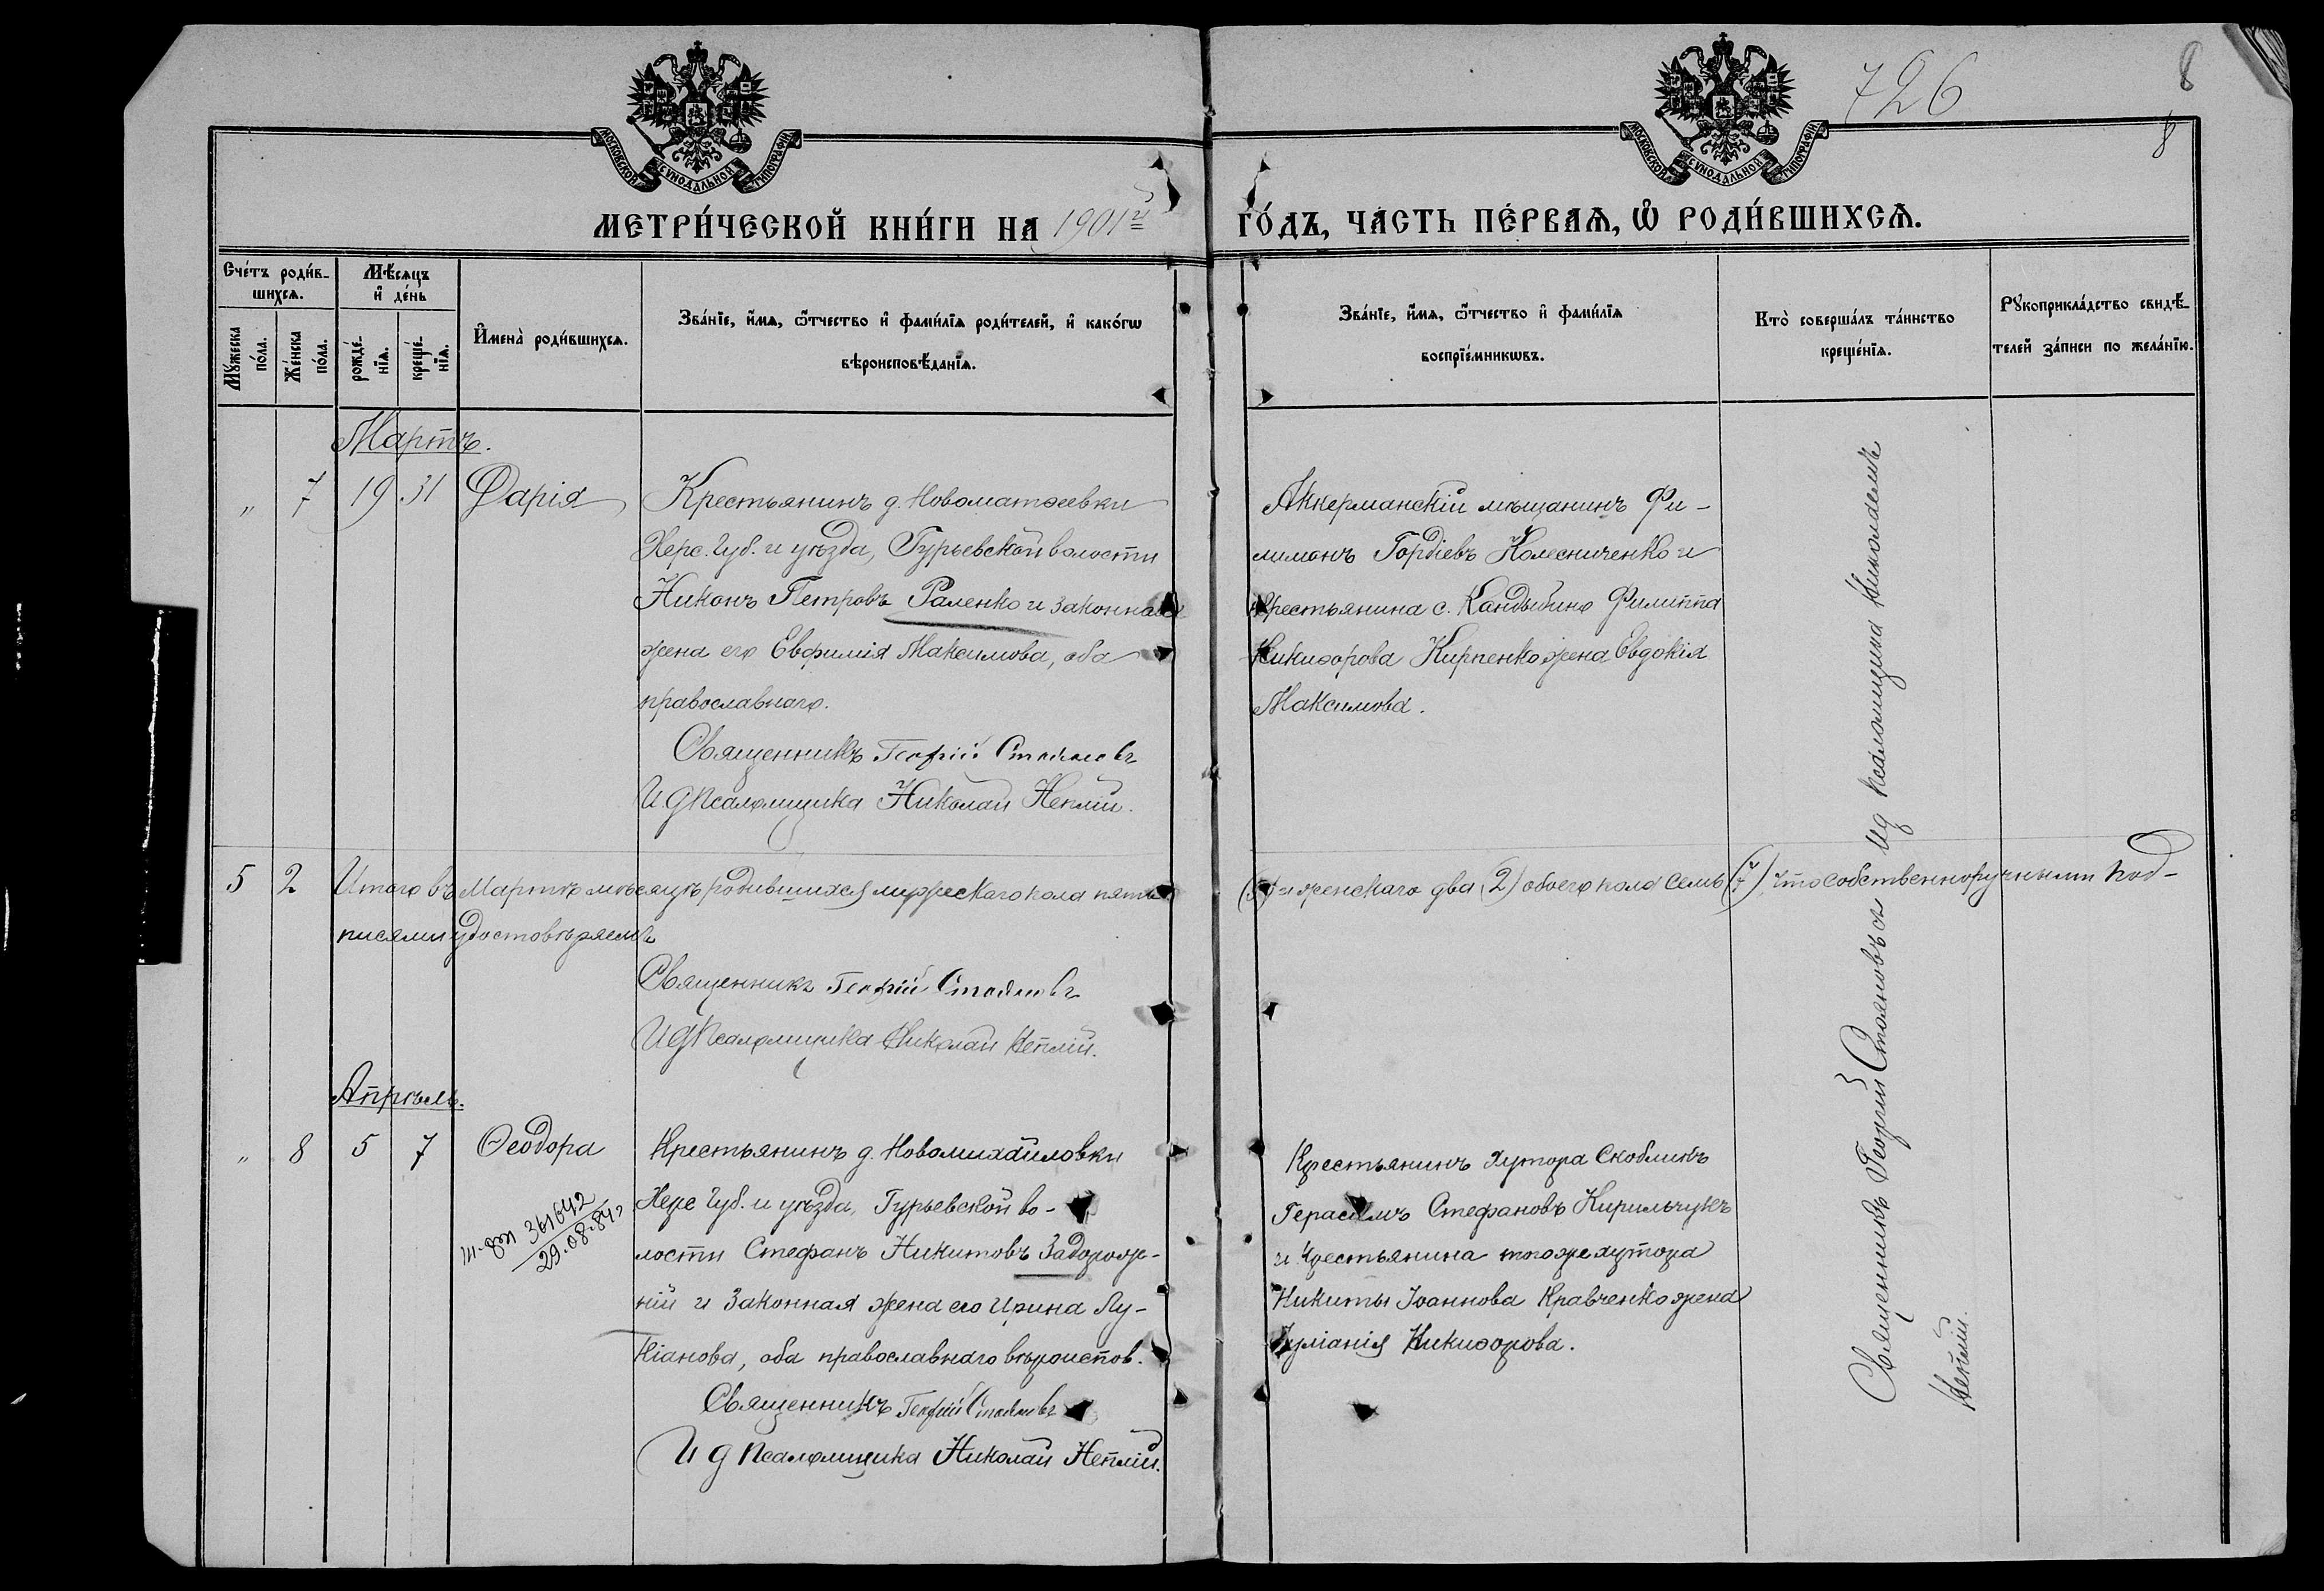 726
8
8
МОСКОВСКОЙ СѴНОДАЛЬНОЙ ТИПОГРАФІИ
МОСКОВСКОЙ СѴНОДАЛЬНОЙ ТИПОГРАФІИ
МЕТРИ́ЧЕСКОЙ КНИ́ГИ НА 1901й
ГО́ДЪ, ЧА́СТЬ ПЕ́РВАѦ, Ѿ РОДИ́ВШИХСѦ.
Счётъ роди́в-
шихсѧ.
Мꙋ́жеска по́ла.
Же́нска по́ла.
Мѣ́сѧцъ
и҆ де́нь
рожде́-
нїѧ.
креще́-
нїѧ.
И҆мена̀ роди́вшихсѧ.
Зва́нїе, и҆́мѧ, ѻ҆́тчество и҆ фами́лїѧ роди́телей, и҆ како́гѡ
вѣроисповѣ́данїѧ.
Зва́нїе, и҆́мѧ, ѻ҆́тчество и҆ фами́лїѧ
воспрїе́мникѡвъ.
Кто̀ соверша́лъ та́инство
креще́нїѧ.
Рꙋкоприкла́дство свидѣ́-
телей за́писи по жела́нїю.
Мартъ.
„ 7 19 31 Дарія
Крестьянинъ д. Новоматѳеевки
Херс. Губ. и уѣзда, Гурьевской волости
Никонъ Петровъ Раленко и законная
жена его Евфимія Максимова, оба
православнаго.
Священникъ Георгій Стояновъ
И. д. псаломщика Николай Неплій.
Аккерманскій мѣщанинъ Фи-
лимонъ Гордіевъ Колесниченко и
крестьянина с. Кандыбино Филиппа
Никифорова Кирпенко жена Евдокія
Максимова.
5 2 Итого въ Мартѣ мѣсяцѣ родившихся мужескаго пола пять
(5) и женскаго два (2) обоего пола семь (7), что собственноручными под-
писями удостовѣряемъ
Священникъ Георгій Стояновъ
И. д. псаломщика Николай Неплій.
Апрѣль.
„ 8 5 7 Ѳеодора
361642
29.08.84г
Крестьянинъ д. Новомихайловки
Херс Губ. и уѣзда, Гурьевской во-
лости Стефанъ Никитовъ Задорож-
ній и законная жена его Ирина Лу-
кіанова, оба православнаго вѣроиспов.
Священникъ Георгій Стояновъ
И д псаломщика Николай Неплій.
Крестьянинъ хутора Скоблиовъ
Герасимъ Стефановъ Кирильчукъ
и крестьянина того же хутора
Никиты Іоаннова Кравченко жена
Іуліанія Никифорова.
Священникъ Георгій Стояновъ съ И д псаломщика Николаемъ
Неплій.